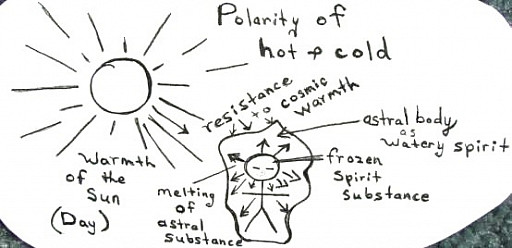 Polarity of
hot & cold
resistance
to cosmic
warmth
astral body
as
watery spirit
frozen
spirit
substance
Warmth
of the
Sun
(Day)
melting
of
astral
substance